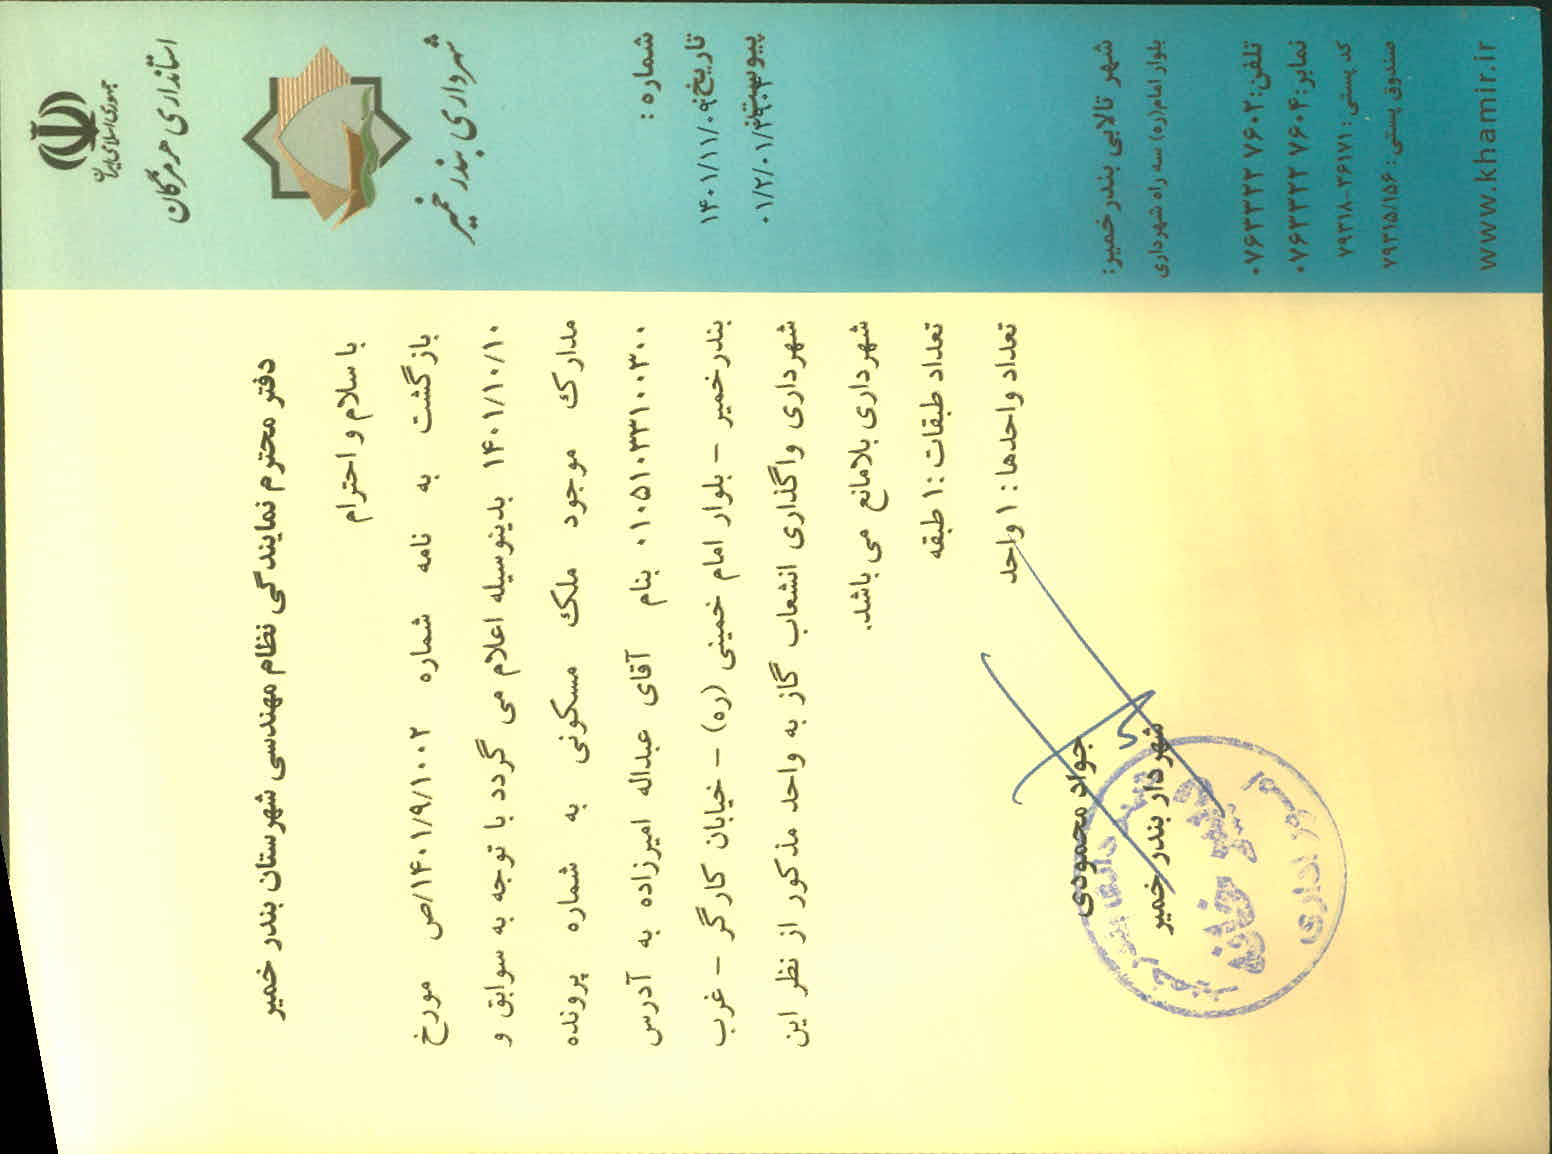 جمهوری اسلامی ایران
استانداری هرمزگان
شهرداری بندر خمیر
شماره:
تاریخ: ۱۴۰۱/۱۱/۰۹
پیوست:
شهر تالابی بندر خمیر:
بلوار امام(ره) سه راه شهرداری
تلفن: ۰۷۶۳۳۲۲ ۷۶۰۲
نمابر: ۰۷۶۳۳۲۲ ۷۶۰۴
کد پستی: ۷۹۳۱۸-۲۶۱۷۱
صندوق پستی: ۷۹۳۱۵/۱۵۶
www.khamir.ir
دفتر محترم نمایندگی نظام مهندسی شهرستان بندر خمیر
با سلام و احترام
بازگشت به نامه شماره ۱۴۰۱/۹/۱۰۰۲/ص مورخ
۱۴۰۱/۱۰/۱۰ بدینوسیله اعلام می گردد با توجه به سوابق و
مدارک موجود ملک مسکونی به شماره پرونده
۰۱۰۵۱۰۳۳۱۰۰۳۰۰ بنام آقای عبداله امیرزاده به آدرس
بندرخمیر – بلوار امام خمینی (ره) – خیابان کارگر – غرب
شهرداری واگذاری انشعاب گاز به واحد مذکور از نظر این
شهرداری بلامانع می باشد.
تعداد طبقات :۱ طبقه
تعداد واحدها : ۱ واحد
جواد محمودی
شهردار بندر خمیر
دبیرخانه
امور اداری